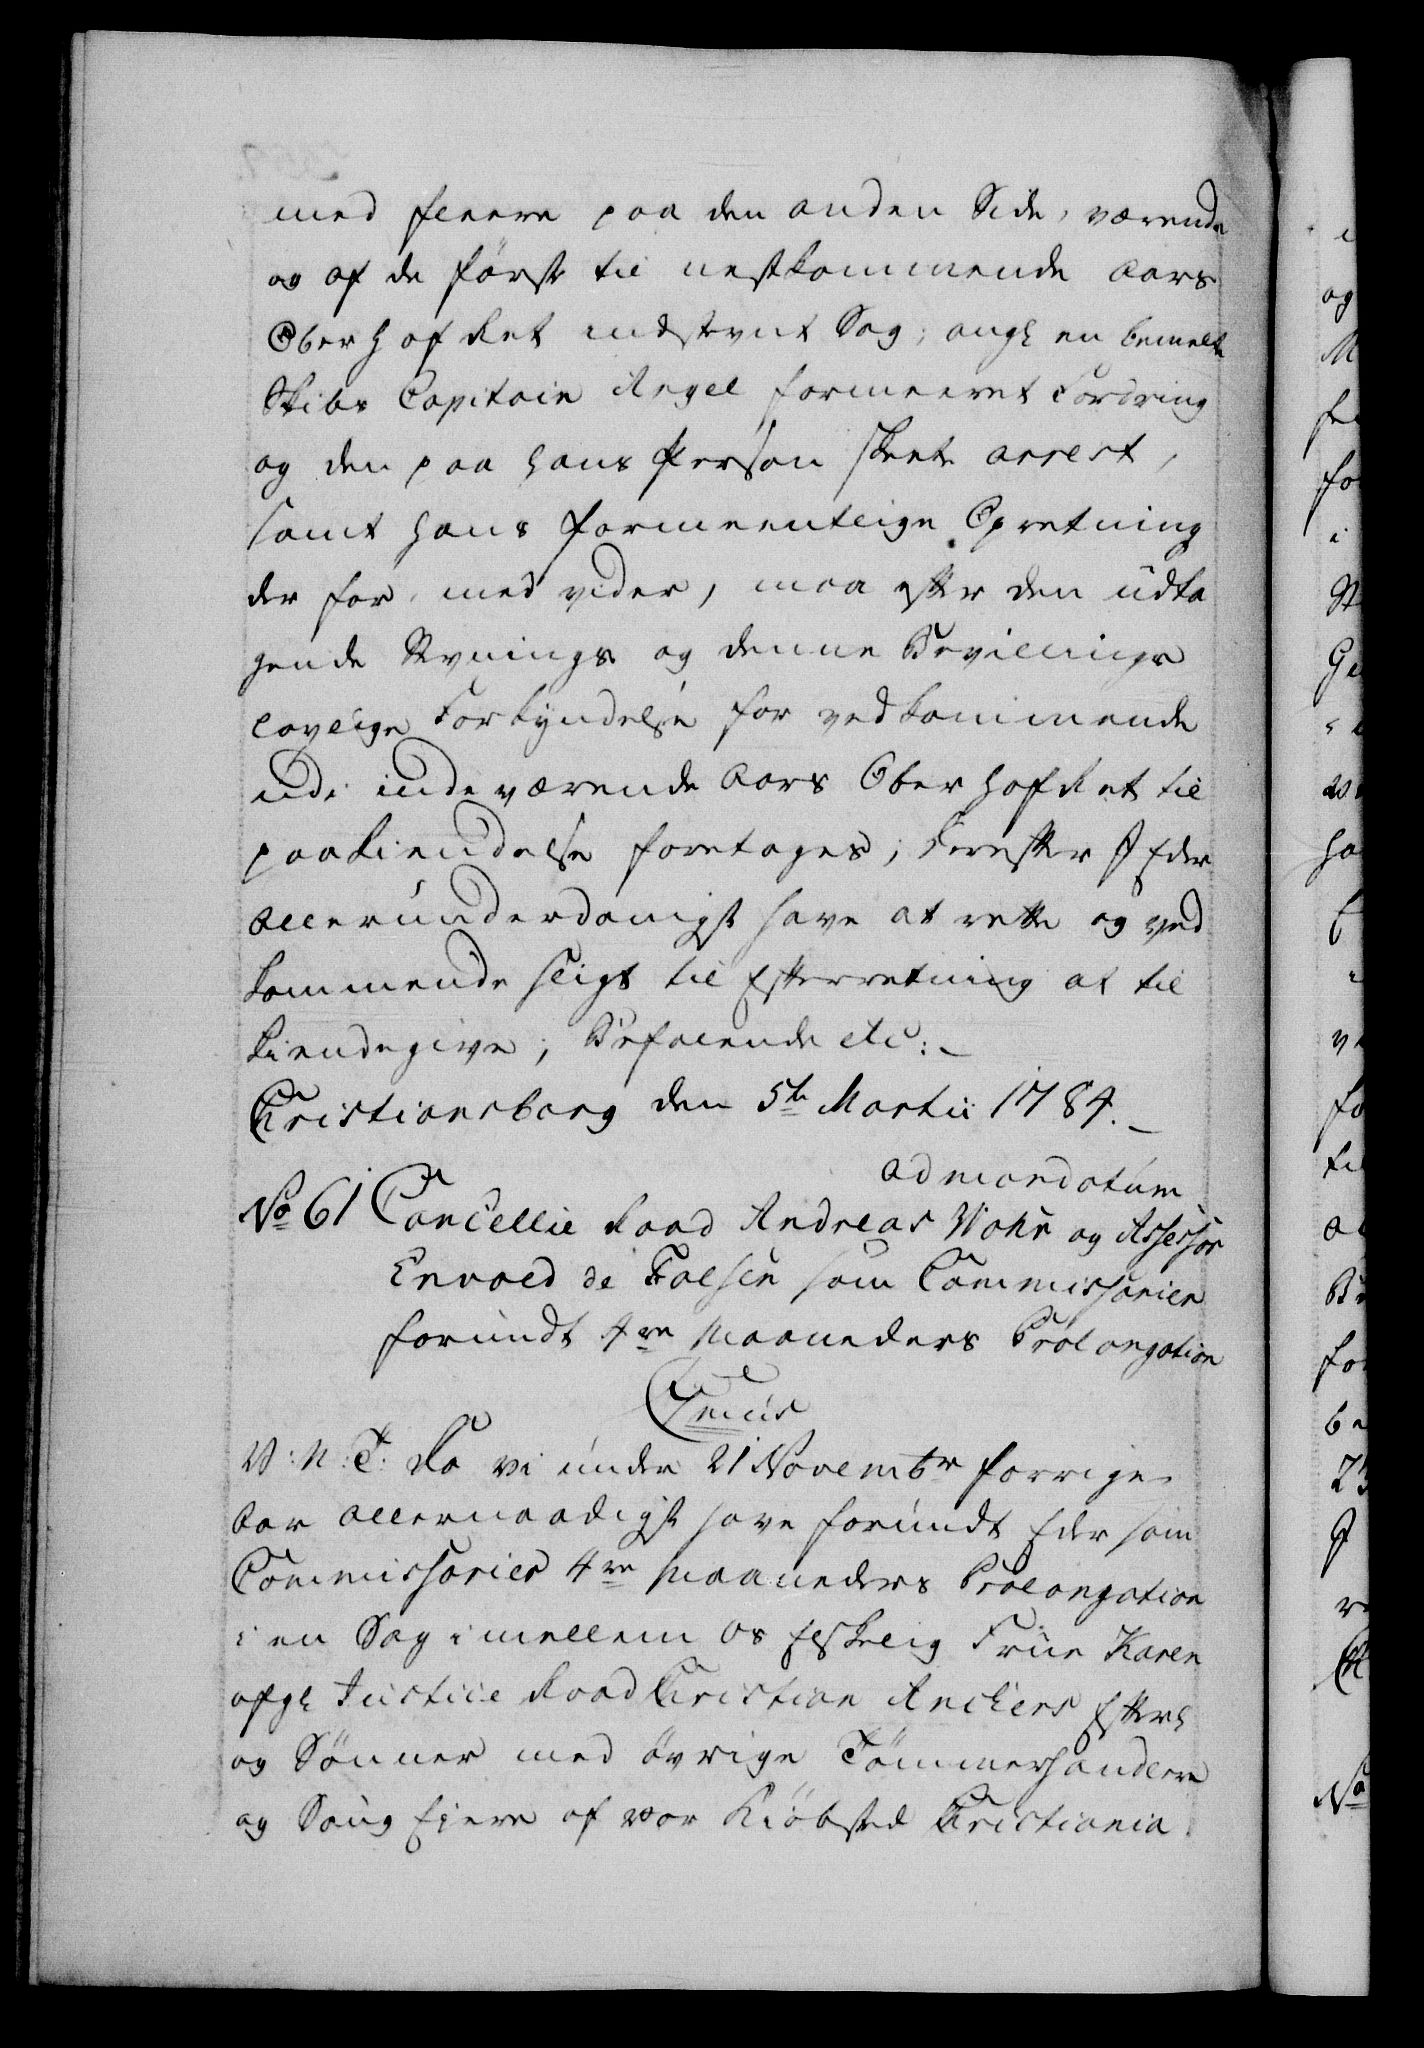 med fleere paa den anden Side, værende
og af de første til nestkommende Aars
Ober Hof Ret indstevnt Sag, angl en bemelte
Skibs Capitain Angel formeeret Fordring
og den paa hans Person skeete arrest,
samt hans formeentlige Opretning
der for, med videre, maa efter den udta
gende Stevnings og denne Bevillings
lovlige Forkyndelse for vedkommende
udi inde værende Aars Ober Hof Ret til
paakiendelse foretages; Herefter I Eder
allerunderdanigst have at rette og ved
kommende sligt til Efterretning at til
kiendegive; Befalende etc:
Christiansborg den 5te Martii 1784.
ad mandatum
No 61 Cancellie Raad Andreas Mohr og Assessor
Envold de Falsen som Commissarier
forundt 4re Maaneders Prolongation
V: N: T: Da vi under 21 Novembr forrige
Aar allernaadigst have forundt Eder som
Commissarier 4re Maaneders Prolongation
i en Sag imellem os Elskelig Frue Karen
afgl Justice Raad Christian Anckers Efterl
og Sønner med øvrige Tømmerhandlere
og Saug Eiere af vor Kiøbsted Christiania